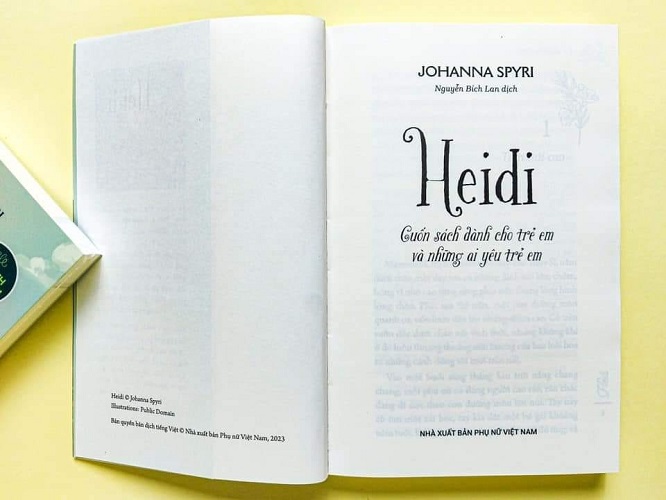 Heidi © Johanna Spyri
Illustrations: Public Domain
Bản quyền bản dịch tiếng Việt © Nhà xuất bản Phụ nữ Việt Nam, 2023
JOHANNA SPYRI
Nguyễn Bích Lan dịch
Heidi
Cuốn sách dành cho trẻ em
và những ai yêu trẻ em
NHÀ XUẤT BẢN PHỤ NỮ VIỆT NAM